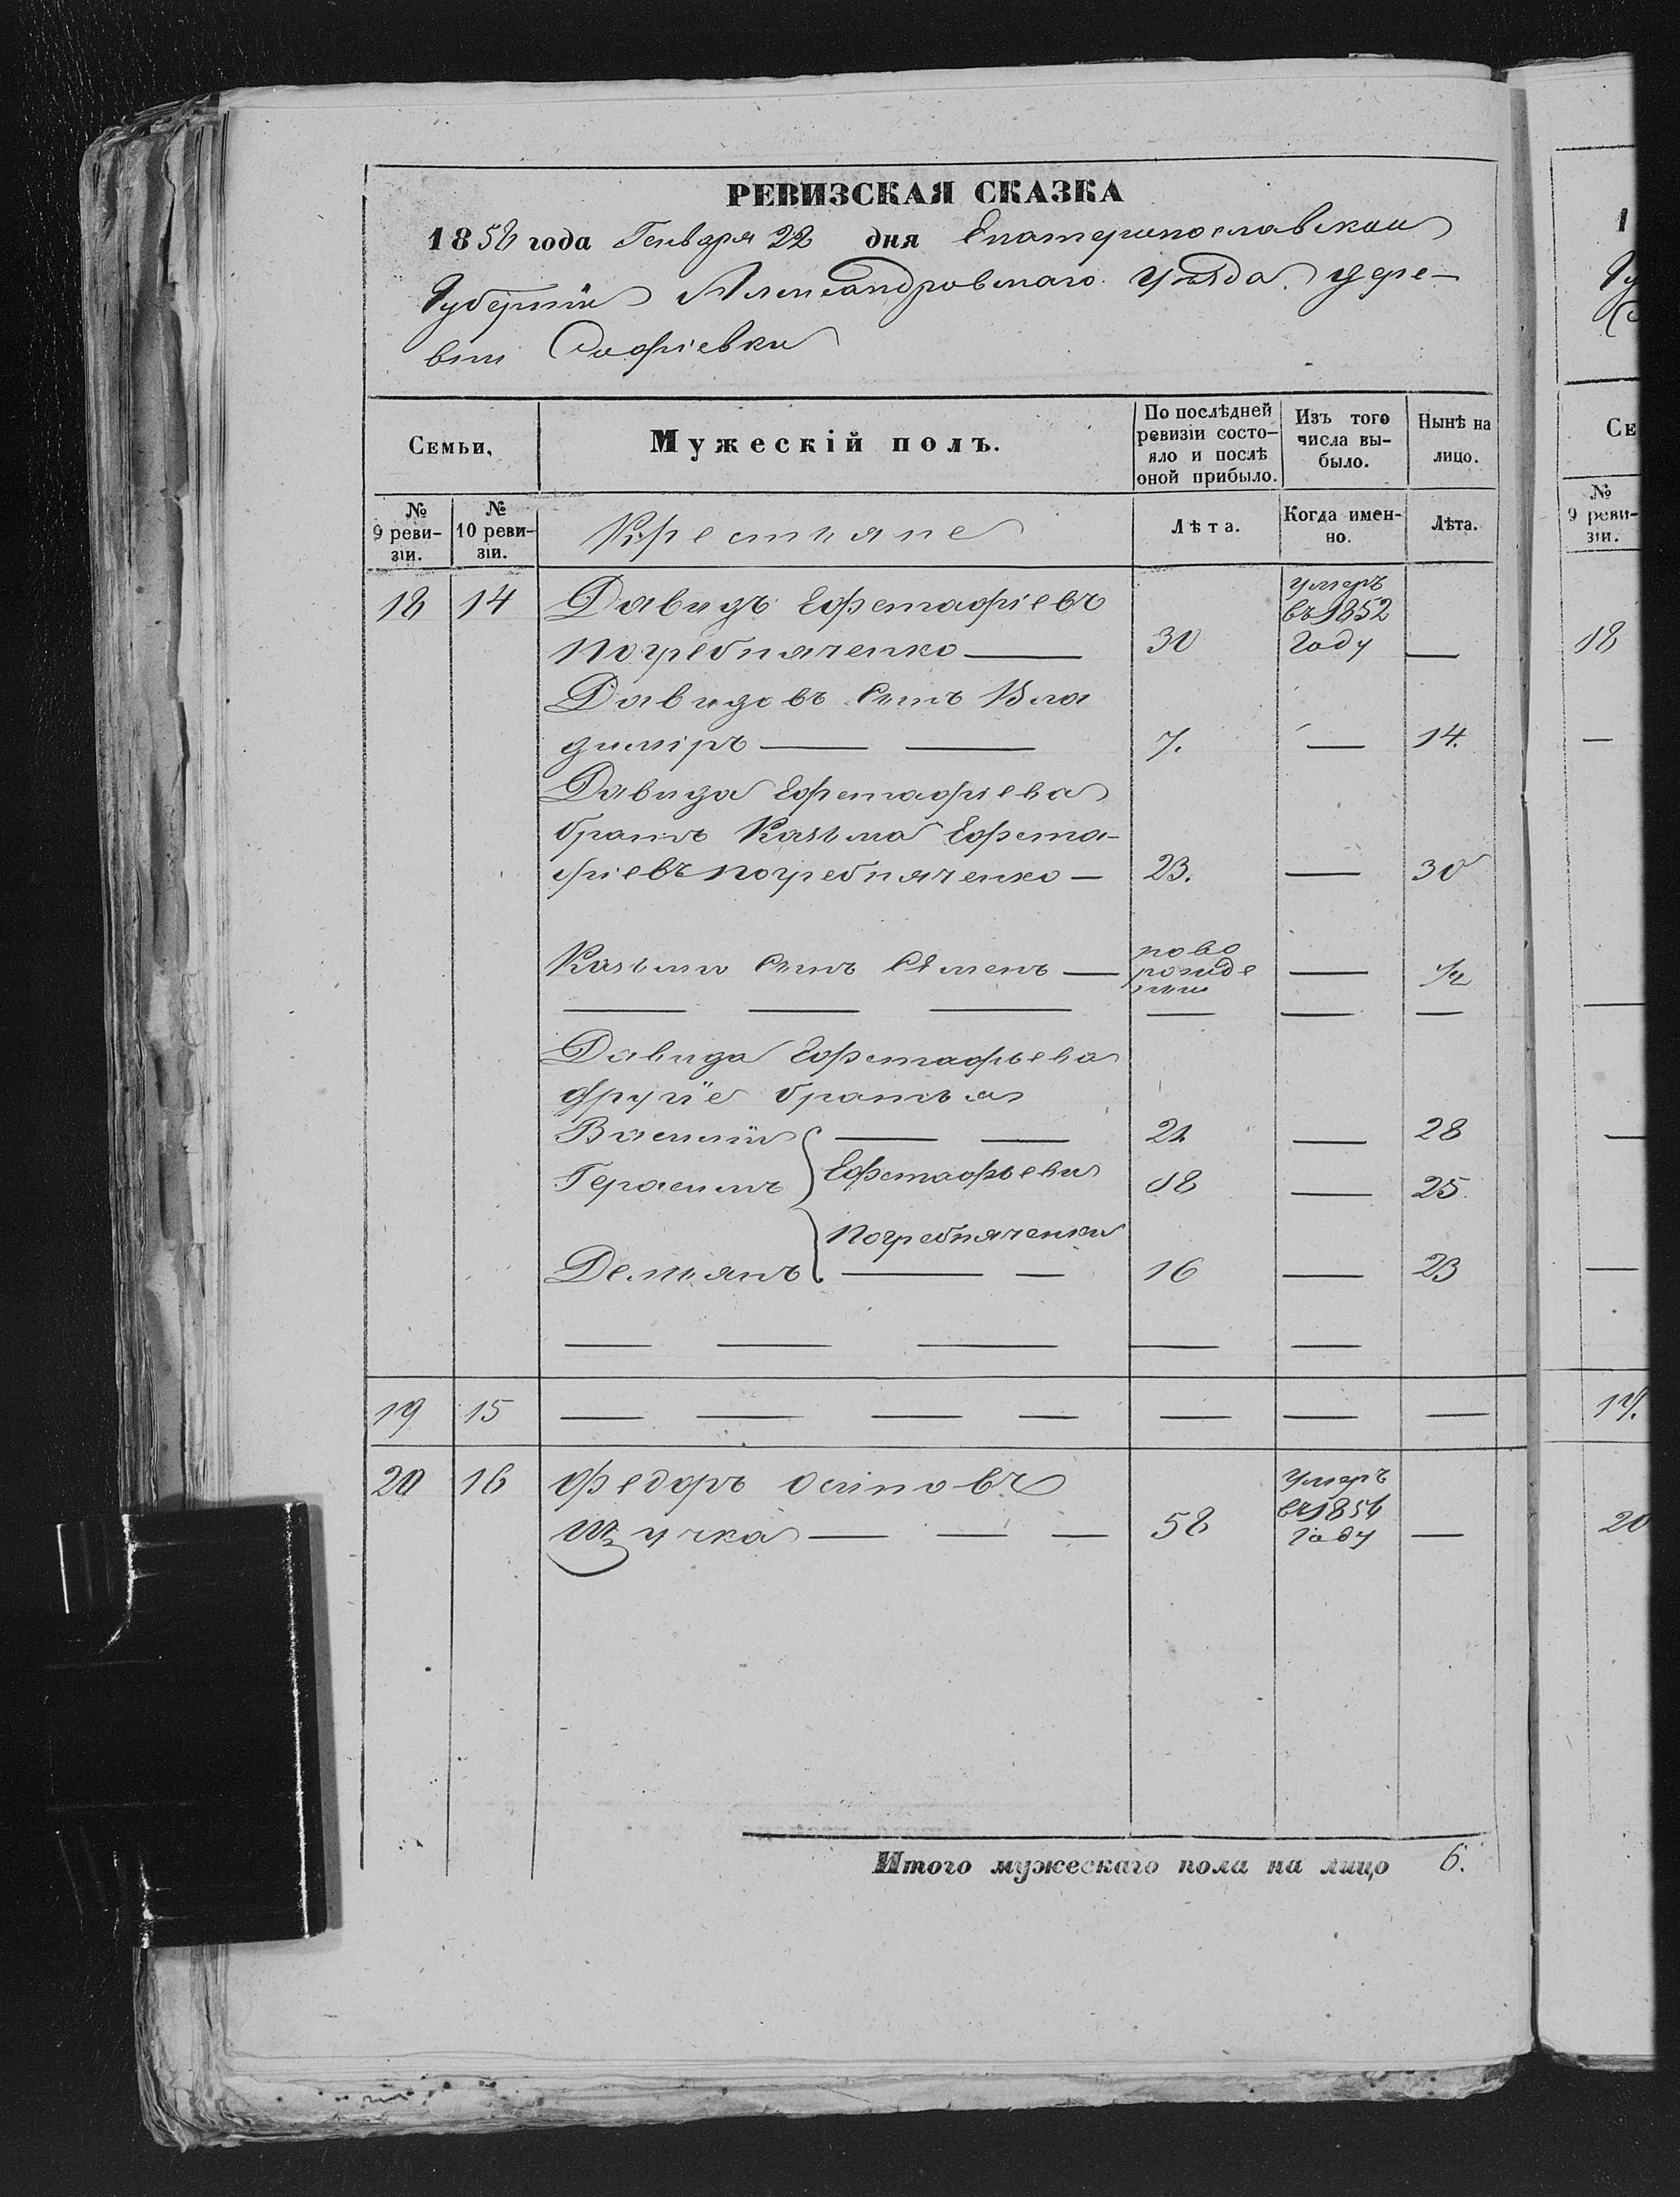 РЕВИЗСКАЯ СКАЗКА
1858 года Генваря 22 дня Екатеринославской
Губернїи Александровскаго уѣзда дере-
вни Софіевки
Семьи,
Мужескій полъ.
По послѣдней ревизіи состо-яло и послѣ оной прибыло.
Изъ того числа вы-было.
Нынѣ на лицо.
№ 9 реви-зіи.
№ 10 реви-зіи.
Крестьяне
Лѣта.
Когда имен-но.
Лѣта.
18 14 Давидъ Ефстафіевъ умеръ въ 1852
Погребняченко — 30 Году —
Давидовъ Сынъ Вла
димiръ — — 7. — 14.
Давида Ефстафіева
братъ Казьма Ефста-
фіевъ Погребняченко — 23. — 30
Казьми Сынъ Сѣменъ — ново рожде нны — 1/2
— — — — — —
Давида Ефстафьева
другїе братья
Василїи — — 21 — 28
Герасимъ Ефстафьеви 18 — 25
Погребняченки
Демьянъ — — 16 — 23
— — — — —
19 15 — — — — — — —
20 16 Федоръ Осиповъ умеръ
Щучка — — — 58 въ 1856 Году —
Итого мужескаго пола на лицо 6.
1
Гу
Се
№ 9 реви-зіи.
18
—
—
—
—
19.
20